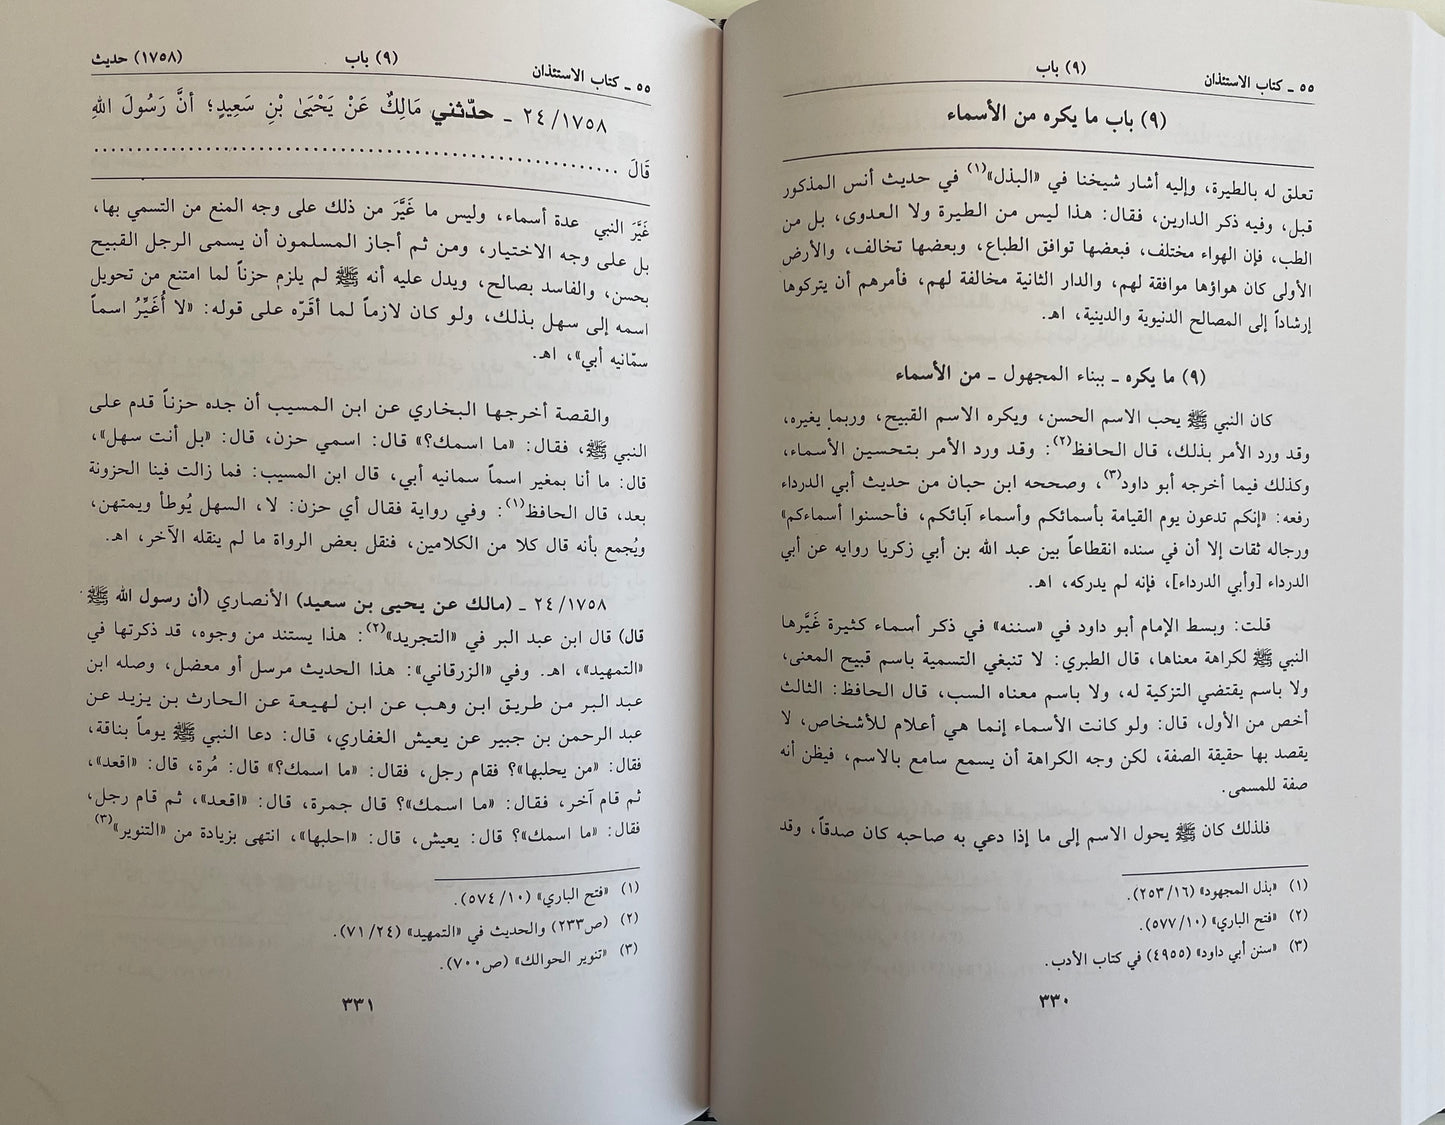 ٥٥ ـ كتاب الاستئذان
(٩) باب
(٩) باب ما يكره من الأسماء
تعلق له بالطيرة، وإليه أشار شيخنا في «البذل»(١) في حديث أنس المذكور
قبل، وفيه ذكر الدارين، فقال: هذا ليس من الطيرة ولا العدوى، بل من
الطب، فإن الهواء مختلف، فبعضها توافق الطباع، وبعضها تخالف، والأرض
الأولى كان هواؤها موافقة لهم، والدار الثانية مخالفة لهم، فأمرهم أن يتركوها
إرشاداً إلى المصالح الدنيوية والدينية، اهـ.
(٩) ما يكره ـ ببناء المجهول ـ من الأسماء
كان النبي ﷺ يحب الاسم الحسن، ويكره الاسم القبيح، وربما يغيره،
وقد ورد الأمر بذلك، قال الحافظ(٢): وقد ورد الأمر بتحسين الأسماء،
وكذلك فيما أخرجه أبو داود(٣)، وصححه ابن حبان من حديث أبي الدرداء
رفعه: «إنكم تدعون يوم القيامة بأسمائكم وأسماء آبائكم، فأحسنوا أسماءكم»
ورجاله ثقات إلا أن في سنده انقطاعاً بين عبد الله بن أبي زكريا روايه عن أبي
الدرداء [وأبي الدرداء]، فإنه لم يدركه، اهـ.
قلت: وبسط الإمام أبو داود في «سننه» في ذكر أسماء كثيرة غَيَّرها
النبي ﷺ لكراهة معناها، قال الطبري: لا تنبغي التسمية باسم قبيح المعنى،
ولا باسم يقتضي التزكية له، ولا باسم معناه السب، قال الحافظ: الثالث
أخص من الأول، قال: ولو كانت الأسماء إنما هي أعلام للأشخاص، لا
يقصد بها حقيقة الصفة، لكن وجه الكراهة أن يسمع سامع بالاسم، فيظن أنه
صفة للمسمى.
فلذلك كان ﷺ يحول الاسم إلى ما إذا دعي به صاحبه كان صدقاً، وقد
(١) «بذل المجهود» (٢٥٣/١٦).
(٢) «فتح الباري» (٥٧٧/١٠).
(٣) «سنن أبي داود» (٤٩٥٥) في كتاب الأدب.
٣٣٠
٥٥ ـ كتاب الاستئذان
(٩) باب
(١٧٥٨) حديث
٢٤/١٧٥٨ ـ حدّثني مَالِكٌ عَنْ يَحْيَىٰ بْنِ سَعِيدٍ؛ أنَّ رَسُولَ اللهِ
قَالَ ........................................................
غَيَّرَ النبي عدة أسماء، وليس ما غَيَّرَ من ذلك على وجه المنع من التسمي بها،
بل على وجه الاختيار، ومن ثم أجاز المسلمون أن يسمى الرجل القبيح
بحسن، والفاسد بصالح، ويدل عليه أنه ﷺ لم يلزم حزناً لما امتنع من تحويل
اسمه إلى سهل بذلك، ولو كان لازماً لما أقَرّه على قوله: «لا أُغَيِّرُ اسماً
سمّانيه أبي»، اهـ.
والقصة أخرجها البخاري عن ابن المسيب أن جده حزناً قدم على
النبي ﷺ، فقال: «ما اسمك؟» قال: اسمي حزن، قال: «بل أنت سهل»،
قال: ما أنا بمغير اسماً سمانيه أبي، قال ابن المسيب: فما زالت فينا الحزونة
بعد، قال الحافظ(١): وفي رواية فقال أي حزن: لا، السهل يُوطأ ويمتهن،
ويُجمع بأنه قال كلا من الكلامين، فنقل بعض الرواة ما لم ينقله الآخر، اهـ.
٢٤/١٧٥٨ ـ (مالك عن يحيى بن سعيد) الأنصاري (أن رسول الله ﷺ
قال) قال ابن عبد البر في «التجريد»(٢): هذا يستند من وجوه، قد ذكرتها في
«التمهيد»، اهـ. وفي «الزرقاني»: هذا الحديث مرسل أو معضل، وصله ابن
عبد البر من طريق ابن وهب عن ابن لهيعة عن الحارث بن يزيد عن
عبد الرحمن بن جبير عن يعيش الغفاري، قال: دعا النبي ﷺ يوماً بناقة،
فقال: «من يحلبها»؟ فقام رجل، فقال: «ما اسمك؟» قال: مُرة، قال: «اقعد»،
ثم قام آخر، فقال: «ما اسمك»؟ قال جمرة، قال: «اقعد»، ثم قام رجل،
فقال: «ما اسمك»؟ قال: يعيش، قال: «احلبها»، انتهى بزيادة من «التنوير»(٣)
(١) «فتح الباري» (٥٧٤/١٠).
(٢) (ص٢٣٣) والحديث في «التمهيد» (٧١/٢٤).
(٣) «تنوير الحوالك» (ص٧٠٠).
٣٣١